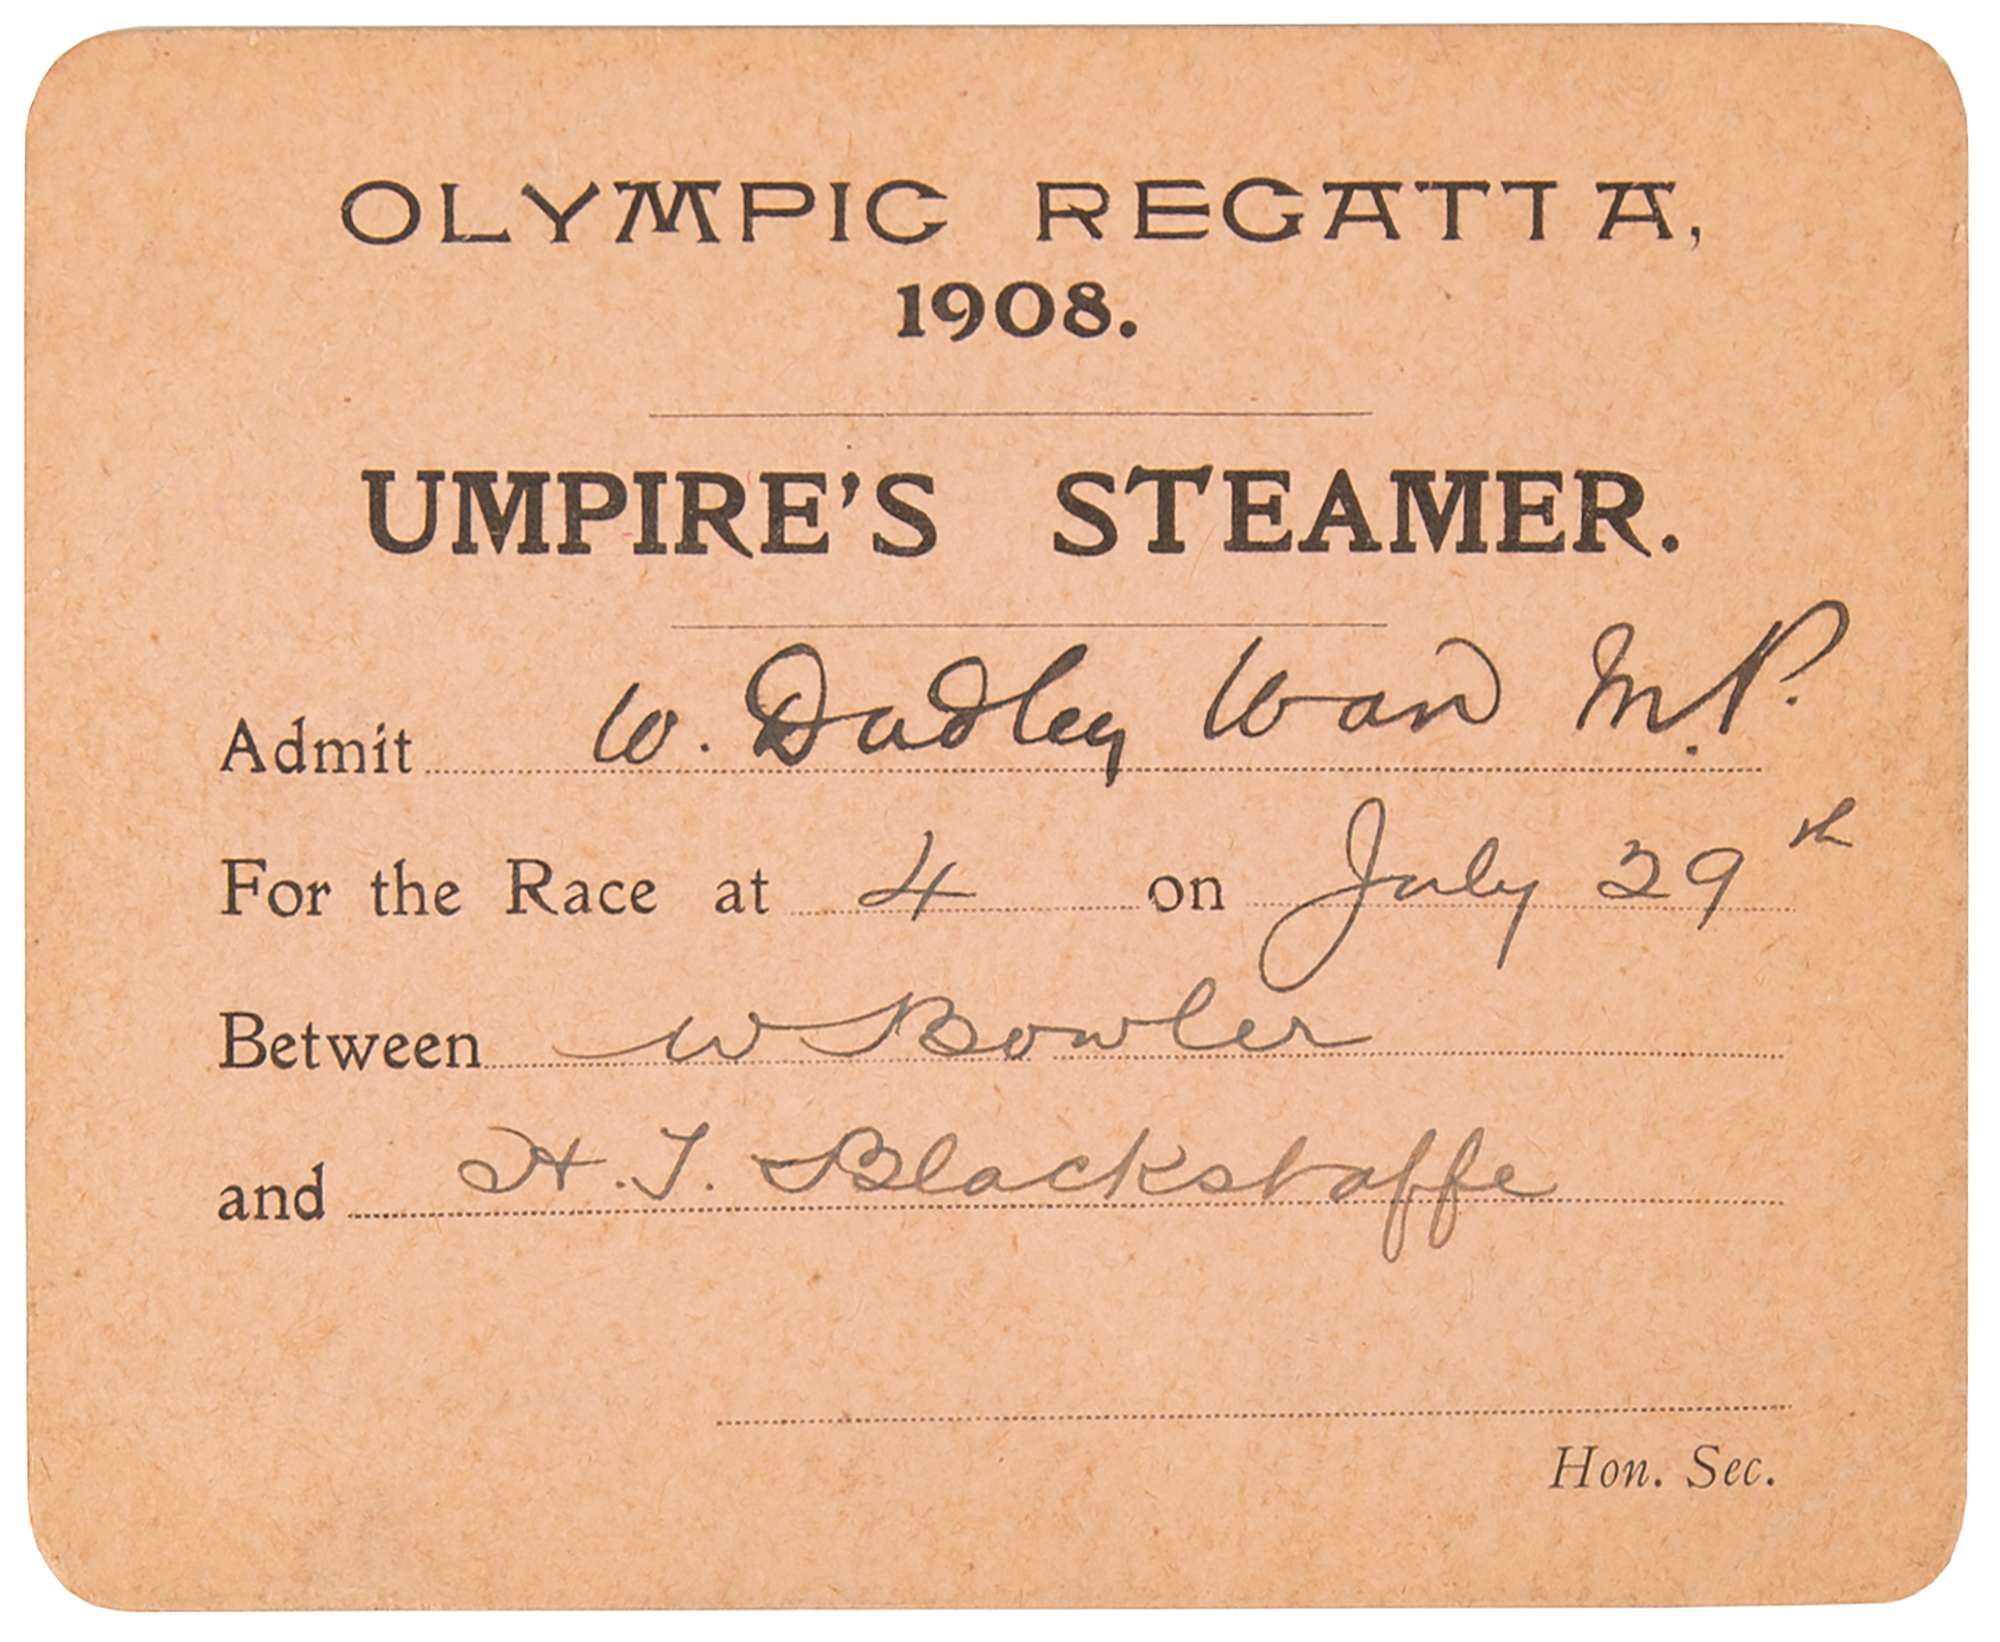 OLYMPIC REGATTA,
1908.
UMPIRE'S STEAMER.
Admit W. Dudley Ward M.P.
For the Race at 4 on July 29th
Between W Bowler
and H. T. Blackstaffe
Hon. Sec.